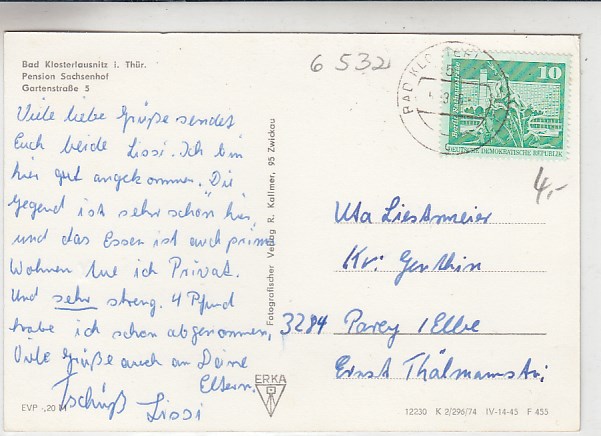 Bad Klosterlausnitz i. Thür.
Pension Sachsenhof
Gartenstraße 5
Viele liebe Grüße sendet
Euch beide Lissi. Ich bin
hier gut angekommen. Die
Gegend ist sehr schön hier,
und das Essen ist auch prima
Wohnen tue ich Privat.
Und sehr streng. 4 Pfund
habe ich schon abgenommen,
Viele Grüße auch an Deine
Eltern.
Tschüß Lissi
EVP -,20 M
Fotografischer Verlag R. Kallmer, 95 Zwickau
ERKA
6 532
BAD KLOSTERLAUSNITZ
10
DEUTSCHE DEMOKRATISCHE REPUBLIK
4,-
Uta Liestmeier
Kr. Genthin
3284 Parey /Elbe
Ernst Thälmannstr.
12230 K 2/296/74 IV-14-45 F 455